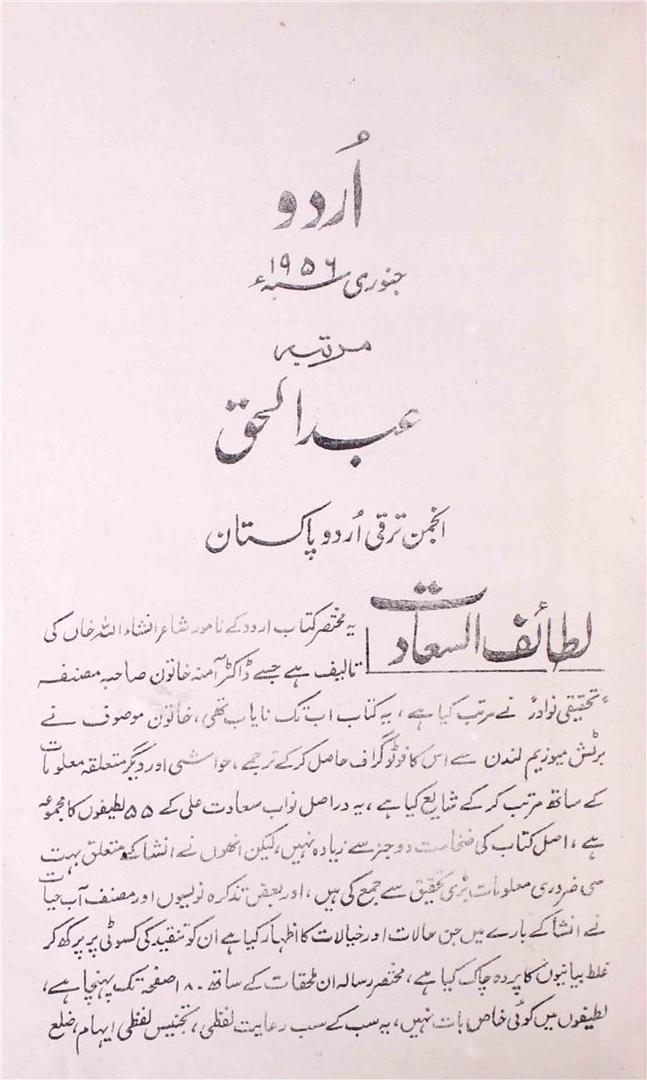 اُردو
جنوری ۱۹۵۶ سنہء
مرتبہ
عبدالحق
انجمن ترقی اُردو پاکستان
لطائف السعادت
یہ مختصر کتاب اردو کے نامور شاعر انشاء اللہ خاں کی
تالیف ہے جسے ڈاکٹر آمنہ خاتون صاحبہ مصنفہ
"تحقیقی نوادر" نے مرتب کیا ہے، یہ کتاب اب تک نایاب تھی، خاتون موصوف نے
برٹش میوزیم لندن سے اس کا فوٹو گراف حاصل کرکے ترجمے، حواشی اور دیگر متعلقہ معلومات
کے ساتھ مرتب کر کے شایع کیا ہے، یہ در اصل نواب سعادت علی کے ۵۵ لطیفوں کا مجموعہ
ہے، اصل کتاب کی ضخامت دو جز سے زیادہ نہیں، لیکن انھوں نے انشا کے متعلق بہت
سی ضروری معلومات بڑی تحقیق سے جمع کی ہیں، اور بعض تذکرہ نویسوں اور مصنف آب حیات
نے انشا کے بارے میں جن حالات اور خیالات کا اظہار کیا ہے ان کو تنقید کی کسوٹی پر پرکھ کر
غلط بیانیوں کا پردہ چاک کیا ہے، مختصر رسالہ ان ملحقات کے ساتھ ۱۸۰ صفحہ تک پہنچا ہے،
لطیفوں میں کوئی خاص بات نہیں، یہ سب کے سب رعایت لفظی، تجنیس لفظی ایہام، ضلع